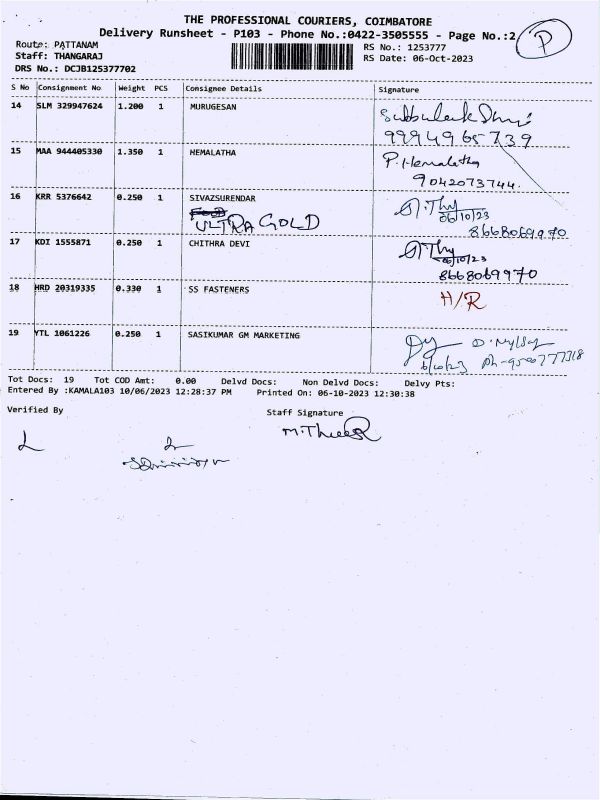 THE PROFESSIONAL COURIERS, COIMBATORE
Delivery Runsheet - P103 - Phone No.:0422-3505555 - Page No.:2
P
Route: PATTANAM
RS No.: 1253777
Staff: THANGARAJ
RS Date: 06-Oct-2023
DRS No.: DCJB125377702
S No Consignment No Weight PCS Consignee Details Signature
14 SLM 329947624 1.200 1 MURUGESAN
9994965739
15 MAA 944405330 1.350 1 HEMALATHA P. Hemalatha
9042073744.
16 KRR 5376642 0.250 1 SIVAZSURENDAR
06/10/23
ULTRA GOLD 8668069970
17 KDI 1555871 0.250 1 CHITHRA DEVI
06/10/23
8668069970
18 HRD 20319335 0.330 1 SS FASTENERS H/R
19 YTL 1061226 0.250 1 SASIKUMAR GM MARKETING
Tot Docs: 19 Tot COD Amt: 0.00 Delvd Docs: Non Delvd Docs: Delvy Pts:
Entered By :KAMALA103 10/06/2023 12:28:37 PM Printed On: 06-10-2023 12:30:38
Verified By Staff Signature